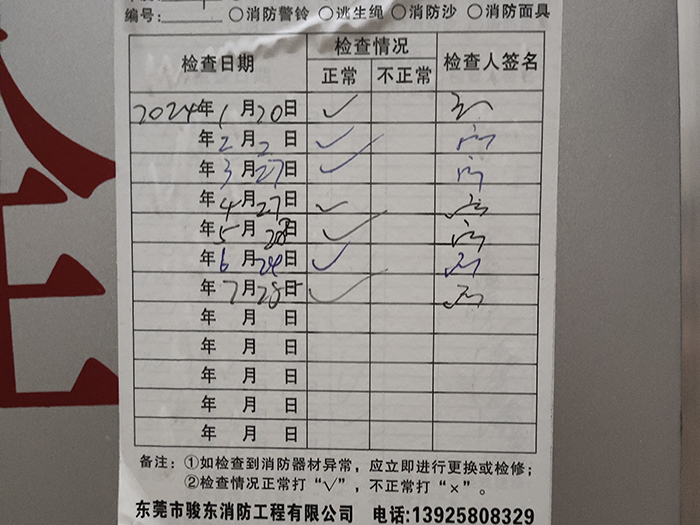 编号:______ ○消防警铃 ○逃生绳 ○消防沙 ○消防面具
检查日期 检查情况 检查人签名
正常 不正常
2024年1月20日 ✓
年2月2日 ✓
年3月27日 ✓
年4月27日 ✓
年5月28日 ✓
年6月24日 ✓
年7月28日 ✓
年 月 日
年 月 日
年 月 日
年 月 日
年 月 日
备注：①如检查到消防器材异常，应立即进行更换或检修；
②检查情况正常打“√”，不正常打“×”。
东莞市骏东消防工程有限公司 电话:13925808329